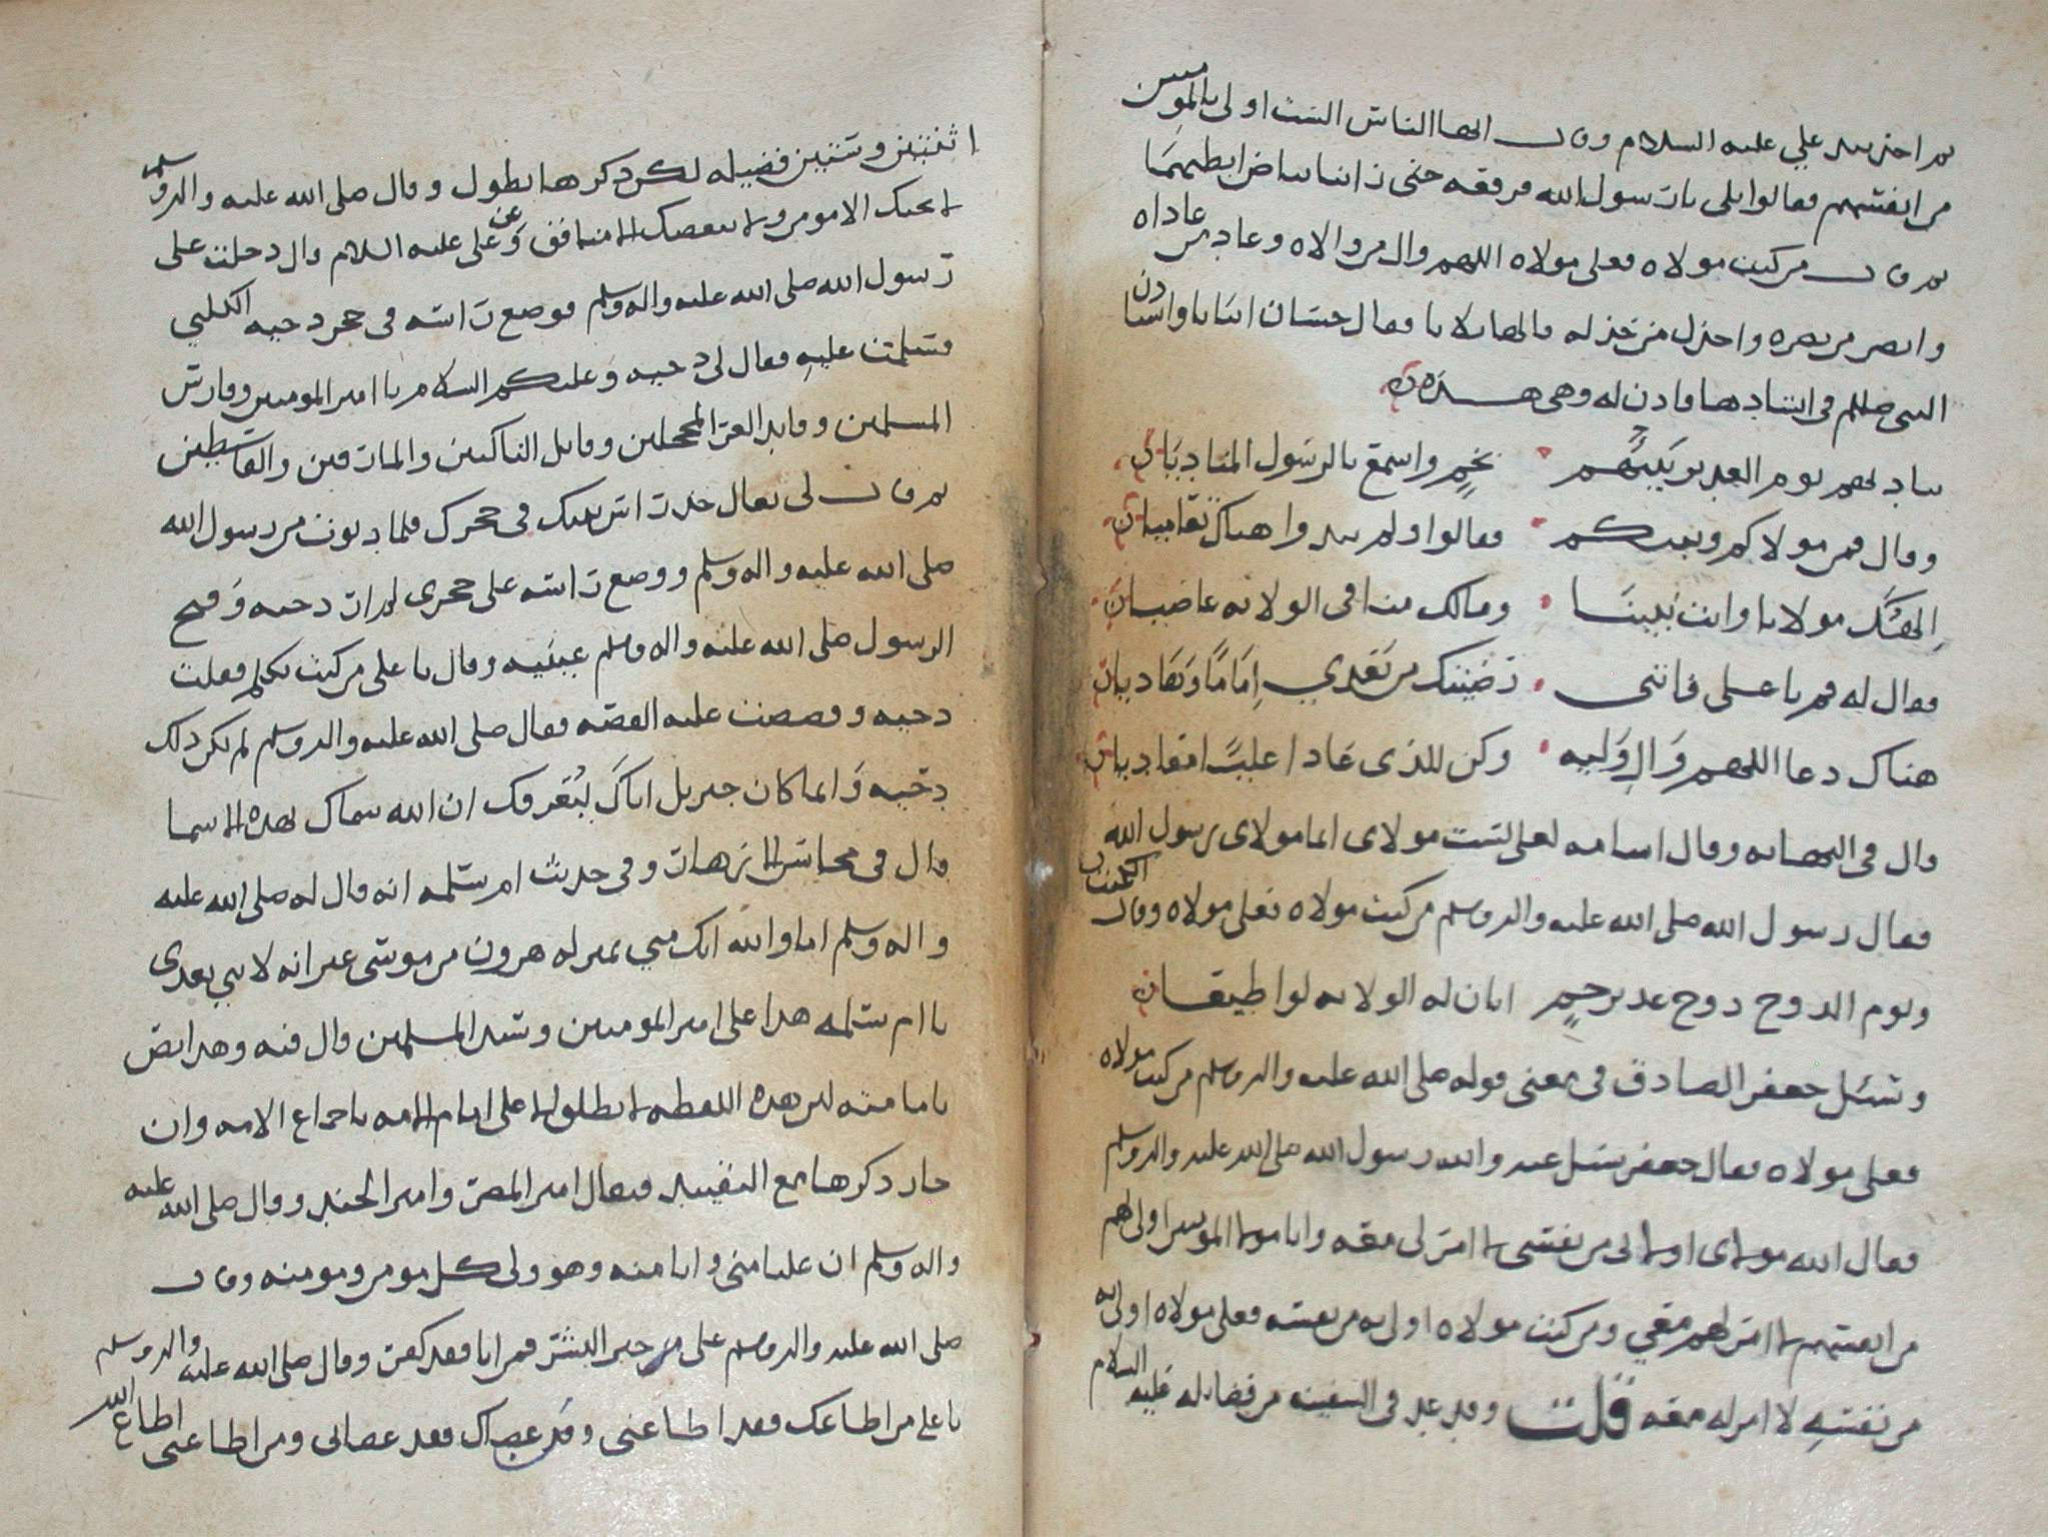 ثم اخذ بيد علي عليه السلام وقال ايها الناس الست اولى بالمومنين
من انفسهم فقالوا بلى يا رسول الله فرفعه حتى راينا بياض ابطيهما
ثم قال من كنت مولاه فعلي مولاه اللهم وال من والاه وعاد من عاداه
وانصر من نصره واخذل من خذله قالها ثلاثا فقال حسان ابياتا واستاذن
النبي صللم في انشادها فاذن له وهي هذه
يناديهم يوم الغدير نبيهم بخم واسمع بالرسول المناديا
وقال فمن مولاكم ونبيكم فقالوا ولم يبدوا هناك تعاميا
الهك مولانا وانت نبينا ومالك منا في الولاية عاصيا
فقال له قم يا علي فانني رضيتك من بعدي اماما وهاديا
هناك دعا اللهم وال وليه وكن للذي عادا عليا معاديا
قال في النهاية وقال اسامة لعلي لست مولاي انما مولاي رسول الله
فقال رسول الله صلى الله عليه واله وسلم من كنت مولاه فعلي مولاه وقال الكميت
ويوم الدوح دوح غدير خم ابان له الولاية لو اطيعا
وسئل جعفر الصادق في معنى قوله صلى الله عليه واله وسلم من كنت مولاه
فعلي مولاه فقال جعفر سئل عنه والله رسول الله صلى الله عليه واله وسلم
فقال الله مولاي اولى بي من نفسي لا امر لي معه وانا مولى المومنين اولى بهم
من انفسهم لا امر لهم معي ومن كنت مولاه اولى به من نفسه فعلي مولاه اولى به
من نفسه لا امر له معه قلت وقد عد في السفينة من فضائله عليه السلام
اثنتين وستين فضيله لكن ذكرها يطول وقال صلى الله عليه واله وسلم
لا يحبك الا مومن ولا يبغضك الا منافق وعن علي عليه السلام قال دخلت على
رسول الله صلى الله عليه واله وسلم فوضع راسه في حجر دحيه الكلبي
فسلمت عليه فقال لي دحيه وعليكم السلام يا امير المومنين وفارس
المسلمين وقايد الغر المحجلين وقاتل الناكثين والمارقين والقاسطين
ثم قال لي تعال خذ راس نبيك في حجرك فلما دنوت من رسول الله
صلى الله عليه واله وسلم ووضع راسه على حجري لم ار دحيه وفتح
الرسول صلى الله عليه واله وسلم عينيه وقال يا علي من كنت تكلم فقلت
دحيه وقصصت عليه القصه فقال صلى الله عليه واله وسلم لم يكن ذلك
دحيه وانما كان جبريل اتاك ليعرفك ان الله سماك بهذه الاسما
قال في محاسن الازهار وفي حديث ام سلمه انه قال له صلى الله عليه
واله وسلم اما والله انك مني بمنزله هرون من موسى غير انه لا نبي بعدي
يا ام سلمه هذا علي امير المومنين وسيد المسلمين قال فيه وهذا نص
بامامته لان هذه اللفظه لا تطلق الا على امام الامه باجماع الامه وان
جاز ذكرها مع التقييد فيقال امير المصر وامير الجند وقال صلى الله عليه
واله وسلم ان عليا مني وانا منه وهو ولي كل مومن ومومنه وقال
صلى الله عليه واله وسلم علي خير البشر فمن ابا فقد كفر وقال صلى الله عليه واله وسلم
يا علي من اطاعك فقد اطاعني ومن عصاك فقد عصاني ومن اطاعني اطاع الله